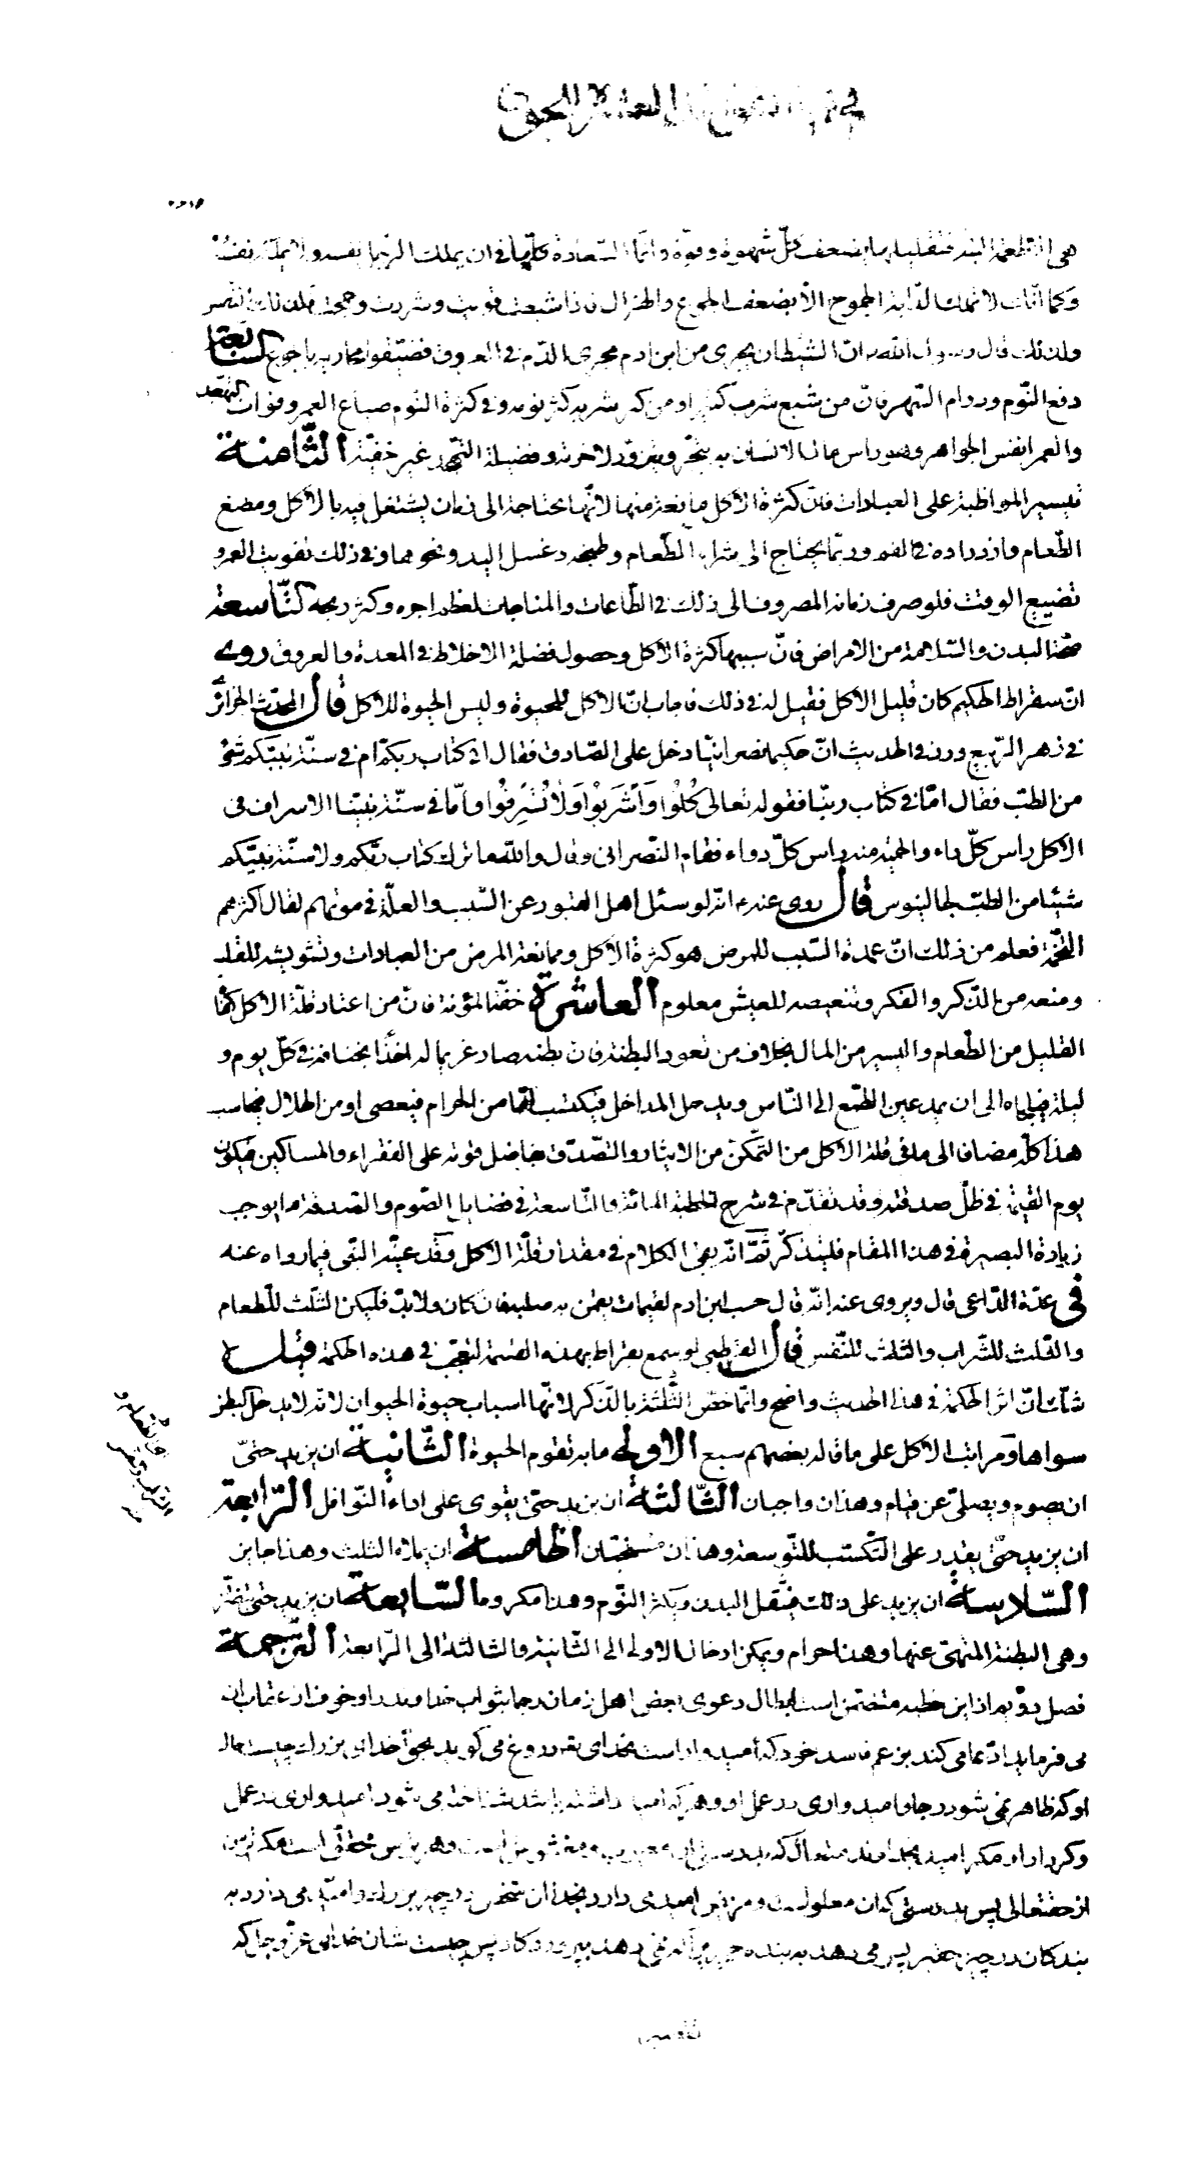 هی الاطعمة البتة فتقليلها يضعف كلّ شهوة وقوّة وانّما السّعادة كلّها فی ان يملك الرّجل نفسه ولا تملكه نفسه
وكما انّك لا تملك الدّابة الجموح الّا بضعف الجوع والهزال فاذا شبعت قويت وشردت وجمحت فكذلك النّفس
ولذلك قال رسول الله ص انّ الشّيطان يجری من ابن ادم مجری الدّم فی العروق فضيّقوا مجاريه بالجوع السّابعة
دفع النّوم ودوام السّهر فانّ من شبع شرب كثيرا ومن كثر شربه كثر نومه وفی كثرة النّوم ضياع العمر وفوات التّهجّد
والعمر انفس الجواهر وهو راس مال الانسان به يتّجر ويتزوّد لاخرته وفضيلة التّهجد غير خفيّة الثّامنة
تيسير المواظبة على العبادات فانّ كثرة الاكل مانعة منها لانّها محتاجة الى زمان يشتغل فيه بالاكل ومضغ
الطّعام وازدراده فی الفم وربّما يحتاج الى شراء الطّعام وطبخه وغسل اليد ونحوهما وفی ذلك تفويت العمر و
تضييع الوقت فلو صرف زمانه المصروف الى ذلك فی الطّاعات والمناجات لعظم اجره وكثر ربحه التّاسعة
صحّة البدن والسّلامة من الامراض فانّ سببها كثرة الاكل وحصول فضلة الاخلاط فی المعدة والعروق روی
انّ سقراط الحكيم كان قليل الاكل فقيل له فی ذلك فاجاب انّ الاكل للحيوة وليس الحيوة للاكل قال المحدّث الجزائری
فی زهر الرّبيع ورد فی الحديث انّ حكيما نصرانيّا دخل على الصّادق فقال افی كتاب ربكم ام فی سنّة نبيّكم شیء
من الطبّ فقال امّا فی كتاب ربّنا فقوله تعالى كُلُوا وَاشْرَبُوا وَلَا تُسْرِفُوا وامّا فی سنّة نبيّنا الاسراف فی
الاكل راس كلّ داء والحمية منه راس كلّ دواء فقام النّصرانی وقال والله ما ترك كتاب ربّكم ولا سنّة نبيّكم
شيئا من الطبّ لجالينوس قال روی عنه انّه لو سئل اهل القبور عن السّبب والعلّة فی موتهم لقال اكثرهم
التّخمة فعلم من ذلك انّ عمدة السّبب للمرض هو كثرة الاكل وممانعة المرض من العبادات وتشويشه للقلب
ومنعه من الذّكر والفكر وتنغيصه للعيش معلوم العاشرة خفّة المؤنة فانّ من اعتاد قلّة الاكل كفاه
القليل من الطّعام واليسير من المال بخلاف من تعود البطنة فانّ بطنه صار غريما له اخذا بخناقه فی كلّ يوم و
ليلة فيلجاه الى ان يمدّ عين الطّمع الى النّاس ويدخل المداخل فيكتسب امّا من الحرام فيعصی او من الحلال فيحاسب
هذا كلّه مضافا الى ما فی قلّة الاكل من التّمكّن من الايثار والتّصدّق بفاضل قوته على الفقراء والمساكين فيكون
يوم القيمة فی ظلّ صدقته وقد تقدّم فی شرح الخطبة المائة والتّاسعة فی فضايل الصّوم والصّدقة ما يوجب
زيادة البصيرة فی هذا المقام فليتذكّر ثمّ انّه بقی الكلام فی مقدار قلّة الاكل وقد عيّنه النّبی فيما رواه عنه
فی عدّة الدّاعی قال ويروی عنه انّه قال حسب ابن ادم لقيمات يقمن به صلبه فان كان ولا بدّ فليكن الثّلث للّطعام
والثّلث للشّراب والثّلث للنّفس قال القرطبی لو سمع بقراط بهذه القسمة لتعجّب فی هذه الحكمة قيل لا
شكّ انّ اثر الحكمة فی هذا الحديث واضح وانّما خصّ الثّلثة بالذّكر لانّها اسباب حيوة الحيوان لانّه لا يدخل البطن
سواها ومراتب الاكل على ما قاله بعضهم سبع الاولى ما به تقوم الحيوة الثّانية ان يزيد حتّى
ان يصوم ويصلّی عن قيام وهذان واجبان الثّالثة ان يزيد حتّى يقوی على اداء النّوافل الرّابعة
ان يزيد حتّى يقدر على التّكسّب للتّوسعة وهذان مستحبّان الخامسة ان يملاء الثلث وهذا جايز
السّادسة ان يزيد على ذلك فيثقل البدن ويكثر النّوم وهذا مكروه السّابعة ان يزيد حتى يتضرّر
وهی البطنة المنهیّ عنها وهذا حرام ويمكن ادخال الاولى الى الثّانية والثالثة الى الرّابعة التّرجمة
فصل دوّيم از اين خطبه متضمّن است ابطال دعوی بعض اهل زمان رجا بثواب خداوند را وخوف از عقاب ان
می فرمايد ادّعا می كند بزعم فاسد خود كه اميدوار است بخدای تعالى دروغ می گويد بحقّ خدای بزرك چيست حال
او كه ظاهر نمی شود رجا و اميدواری در عمل او وهر كه اميد داشته باشد شناخته می شود اميدواری در عمل
وكردار او مگر اميد بخداوند متعال كه بدرستی ان معيوب ومغشوش است وهر ترس محقّق است مگر ترس
از حقتعالى پس بدرستی كه ان معلول است اميد می دارد بخدا ان شخص در چيز بزرك واميد می دارد به
بندگان در چيز حقير پس می دهد به بنده چيزيرا كه نمی دهد بپروردگار پس چيست شان خدای عزّ وجلّ كه